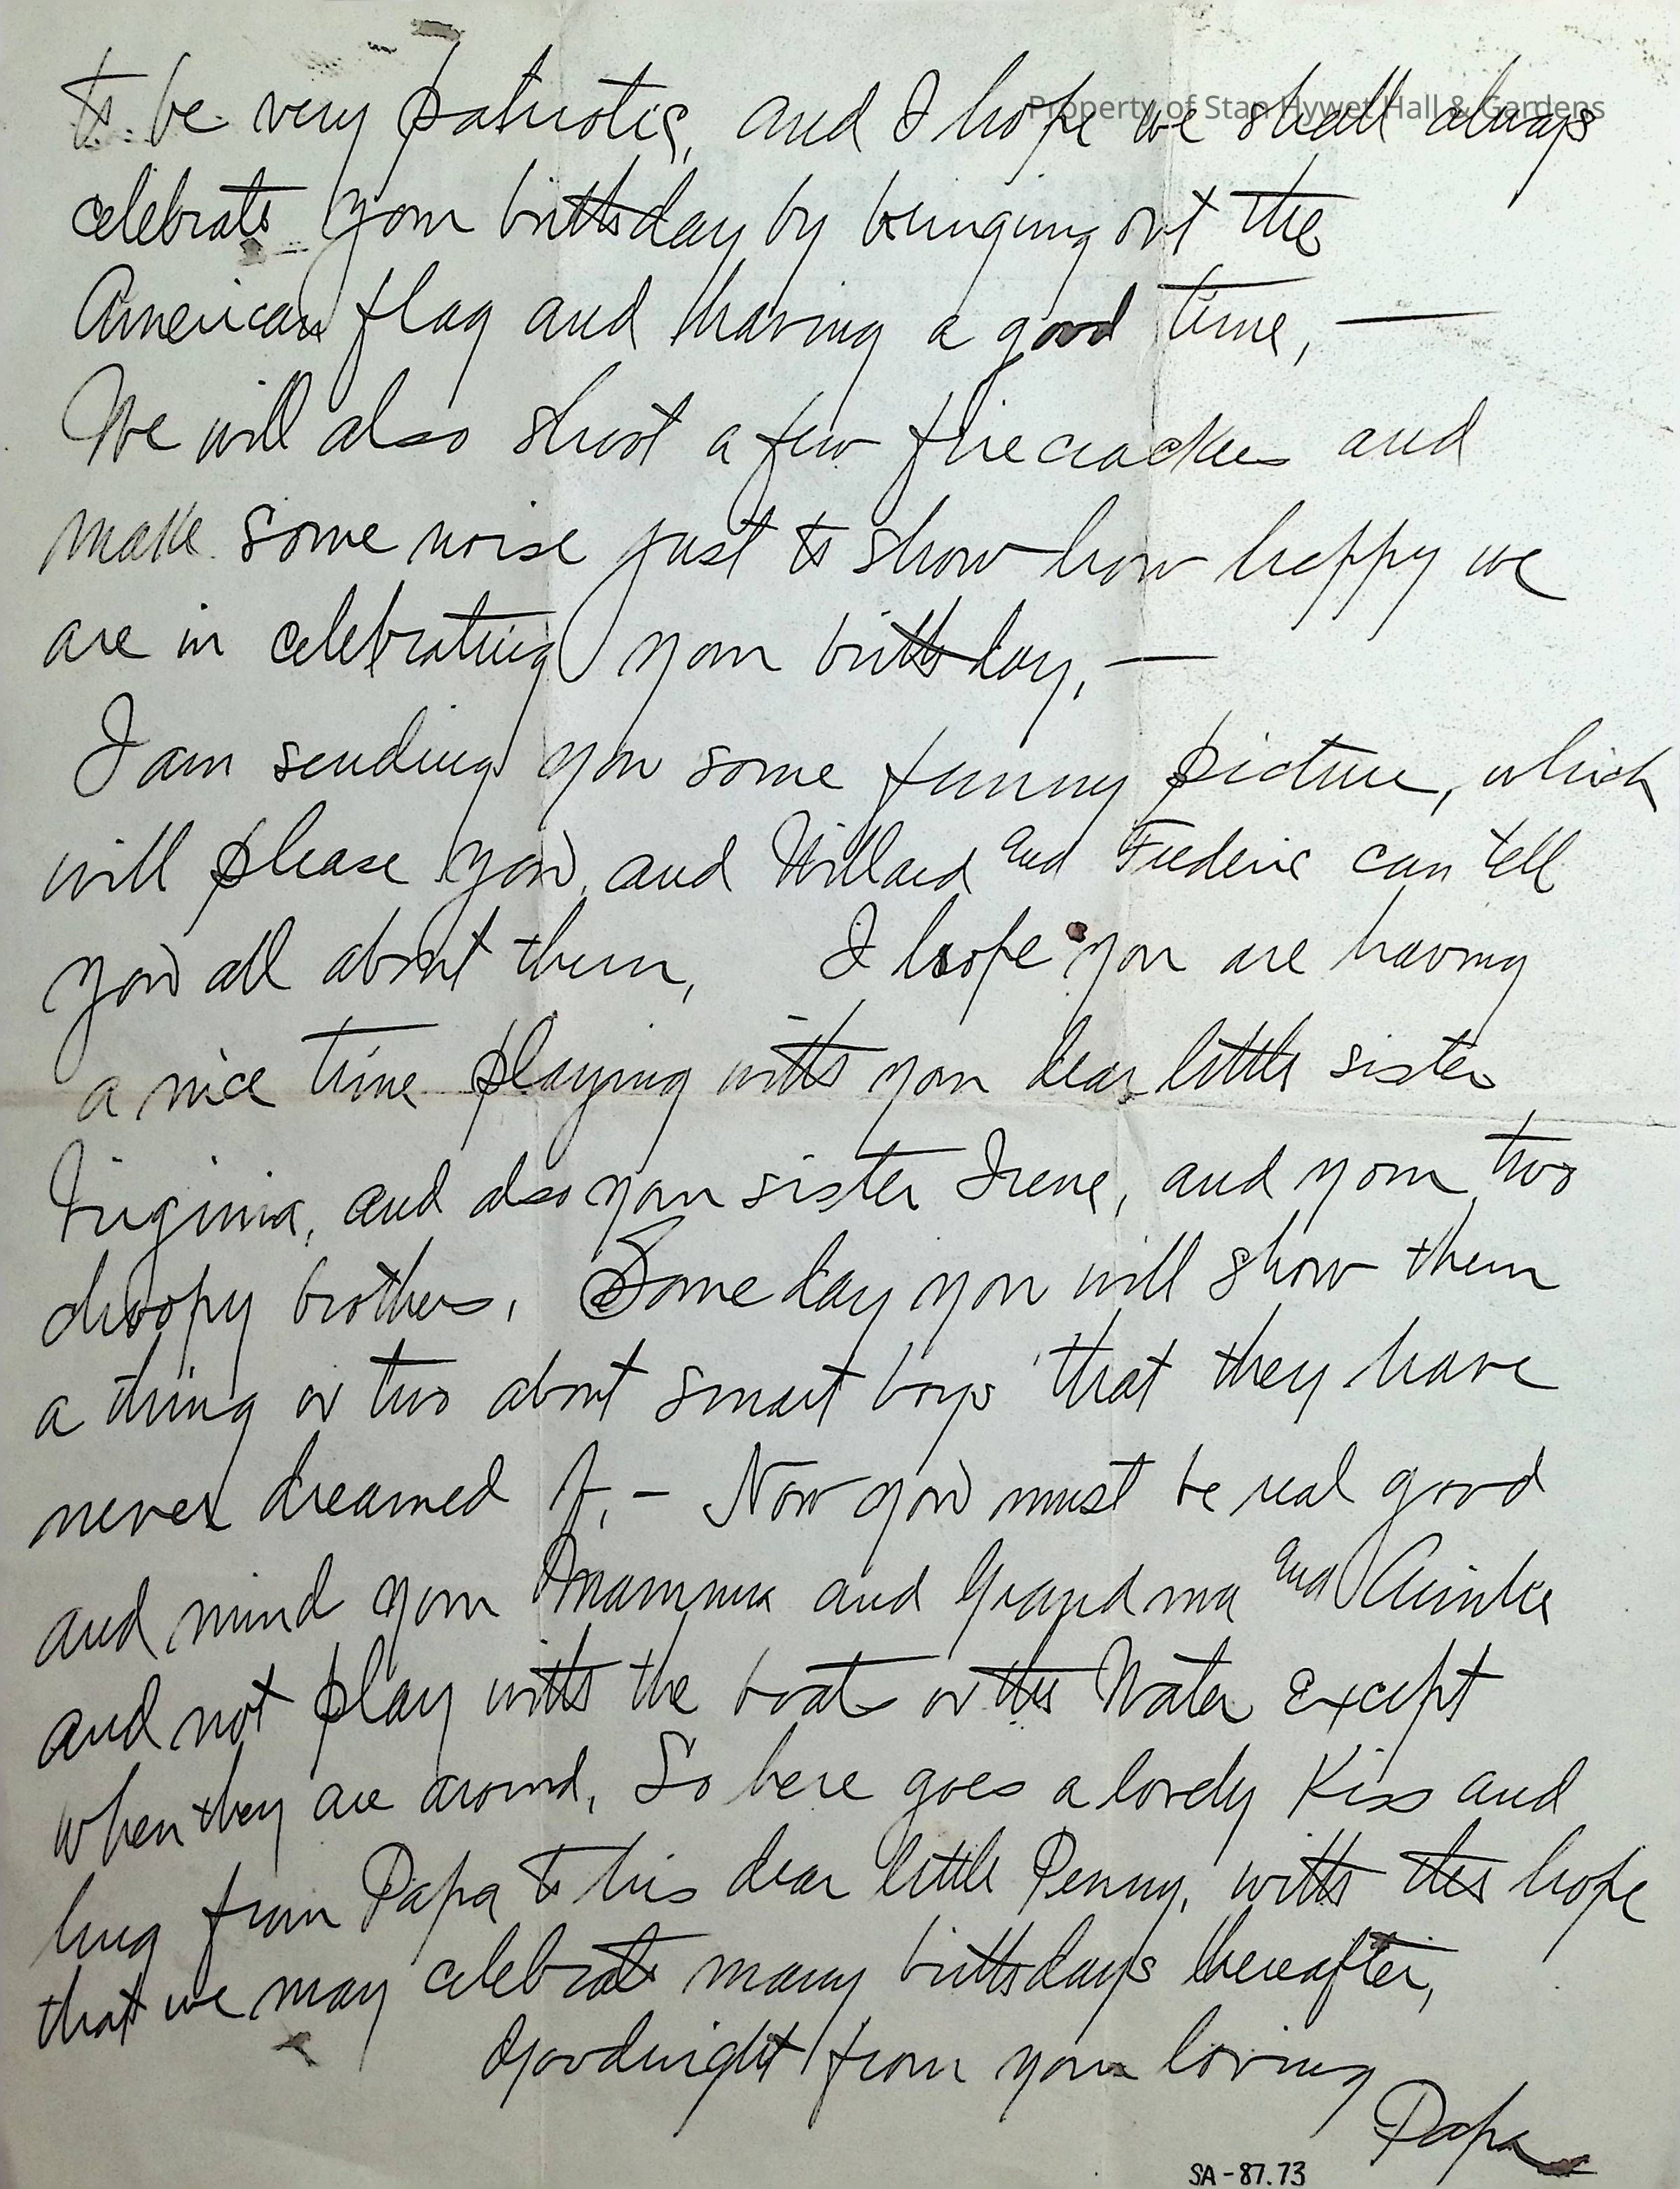 Property of Stan Hywet Hall & Gardens
to be very patriotic, and I hope we shall always
celebrate your birthday by bringing out the
American flag and having a good time, —
We will also shoot a few firecrackers and
make some noise just to show how happy we
are in celebrating your birthday, —
I am sending you some funny picture, which
will please you, and Willard and Frederic can tell
you all about them, I hope you are having
a nice time playing with your dear little sister
Virginia, and also your sister Irene, and your two
droopy brothers. Some day you will show them
a thing or two about smart boys that they have
never dreamed of, - Now you must be real good
and mind your Mamma and Grandma and Auntie
and not play with the boats or the Water except
when they are around, So here goes a lovely Kiss and
hug from Papa to his dear little Penny, with the hope
that we may celebrate many birthdays hereafter,
Goodnight from your loving
Papa
SA-87.73